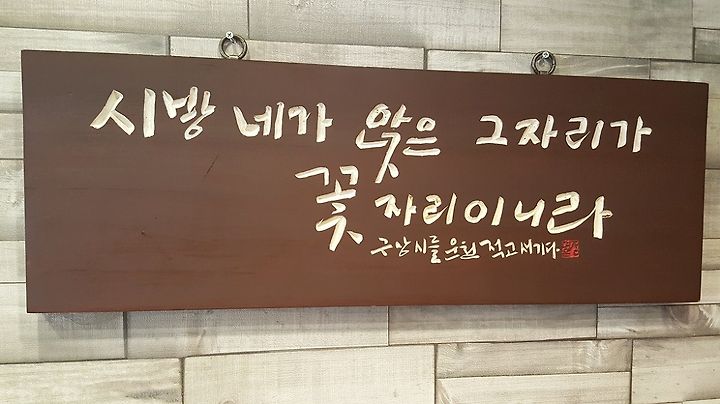 시방 네가 앉은 그 자리가
꽃자리이니라
구상 시를 운현 적고 새기다